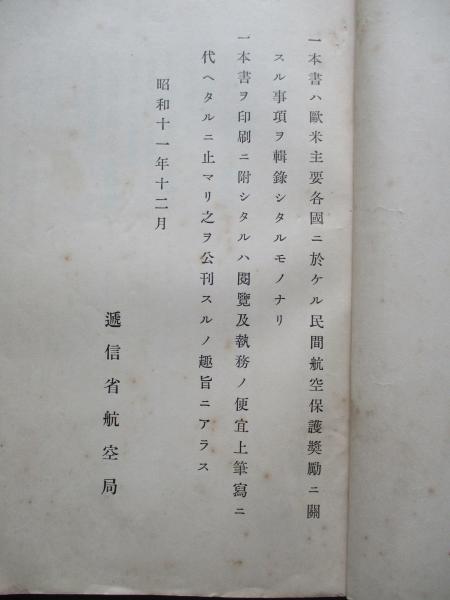 一本書ハ歐米主要各國ニ於ケル民間航空保護奬勵ニ關
スル事項ヲ輯錄シタルモノナリ
一本書ヲ印刷ニ附シタルハ閱覽及執務ノ便宜上筆寫ニ
代ヘタルニ止マリ之ヲ公刊スルノ趣旨ニアラス
昭和十一年十二月
遞信省航空局